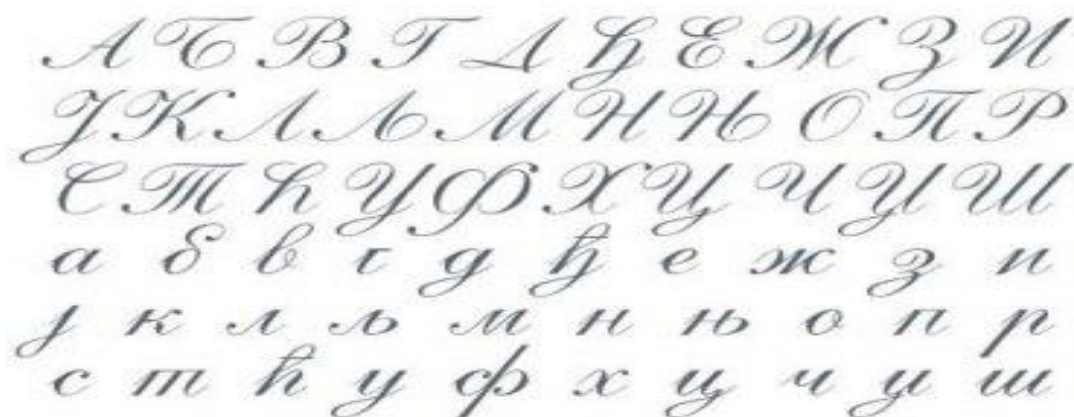 А Б В Г Д Ђ Е Ж З И
Ј К Л Љ М Н Њ О П Р
С Т Ћ У Ф Х Ц Ч Џ Ш
а б в г д ђ е ж з и
ј к л љ м н њ о п р
с т ћ у ф х ц ч џ ш